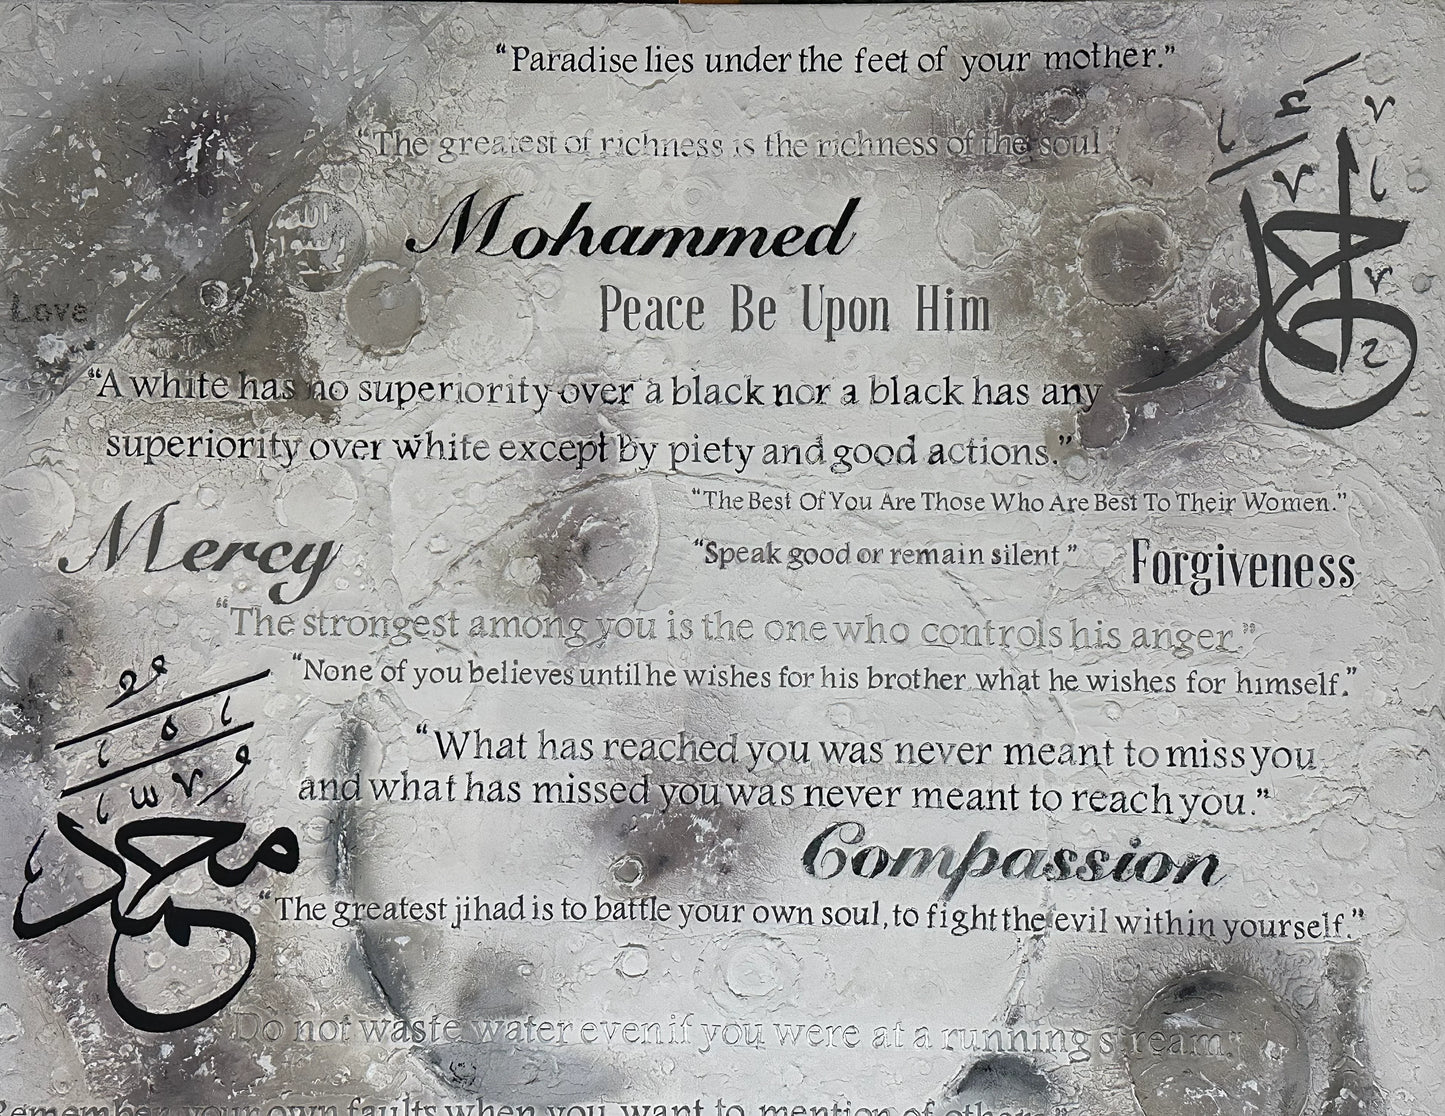 “Paradise lies under the feet of your mother.”
“The greatest of richness is the richness of the soul.”
Mohammed
الله
رسول
Peace Be Upon Him
Love
“A white has no superiority over a black nor a black has any
superiority over white except by piety and good actions.”
“The Best Of You Are Those Who Are Best To Their Women.”
“Speak good or remain silent.”
Mercy
Forgiveness
“The strongest among you is the one who controls his anger.”
“None of you believes until he wishes for his brother what he wishes for himself.”
“What has reached you was never meant to miss you
and what has missed you was never meant to reach you.”
محمد
Compassion
“The greatest jihad is to battle your own soul, to fight the evil within yourself.”
Do not waste water even if you were at a running stream.”
Remember your own faults when you want to mention of others.”